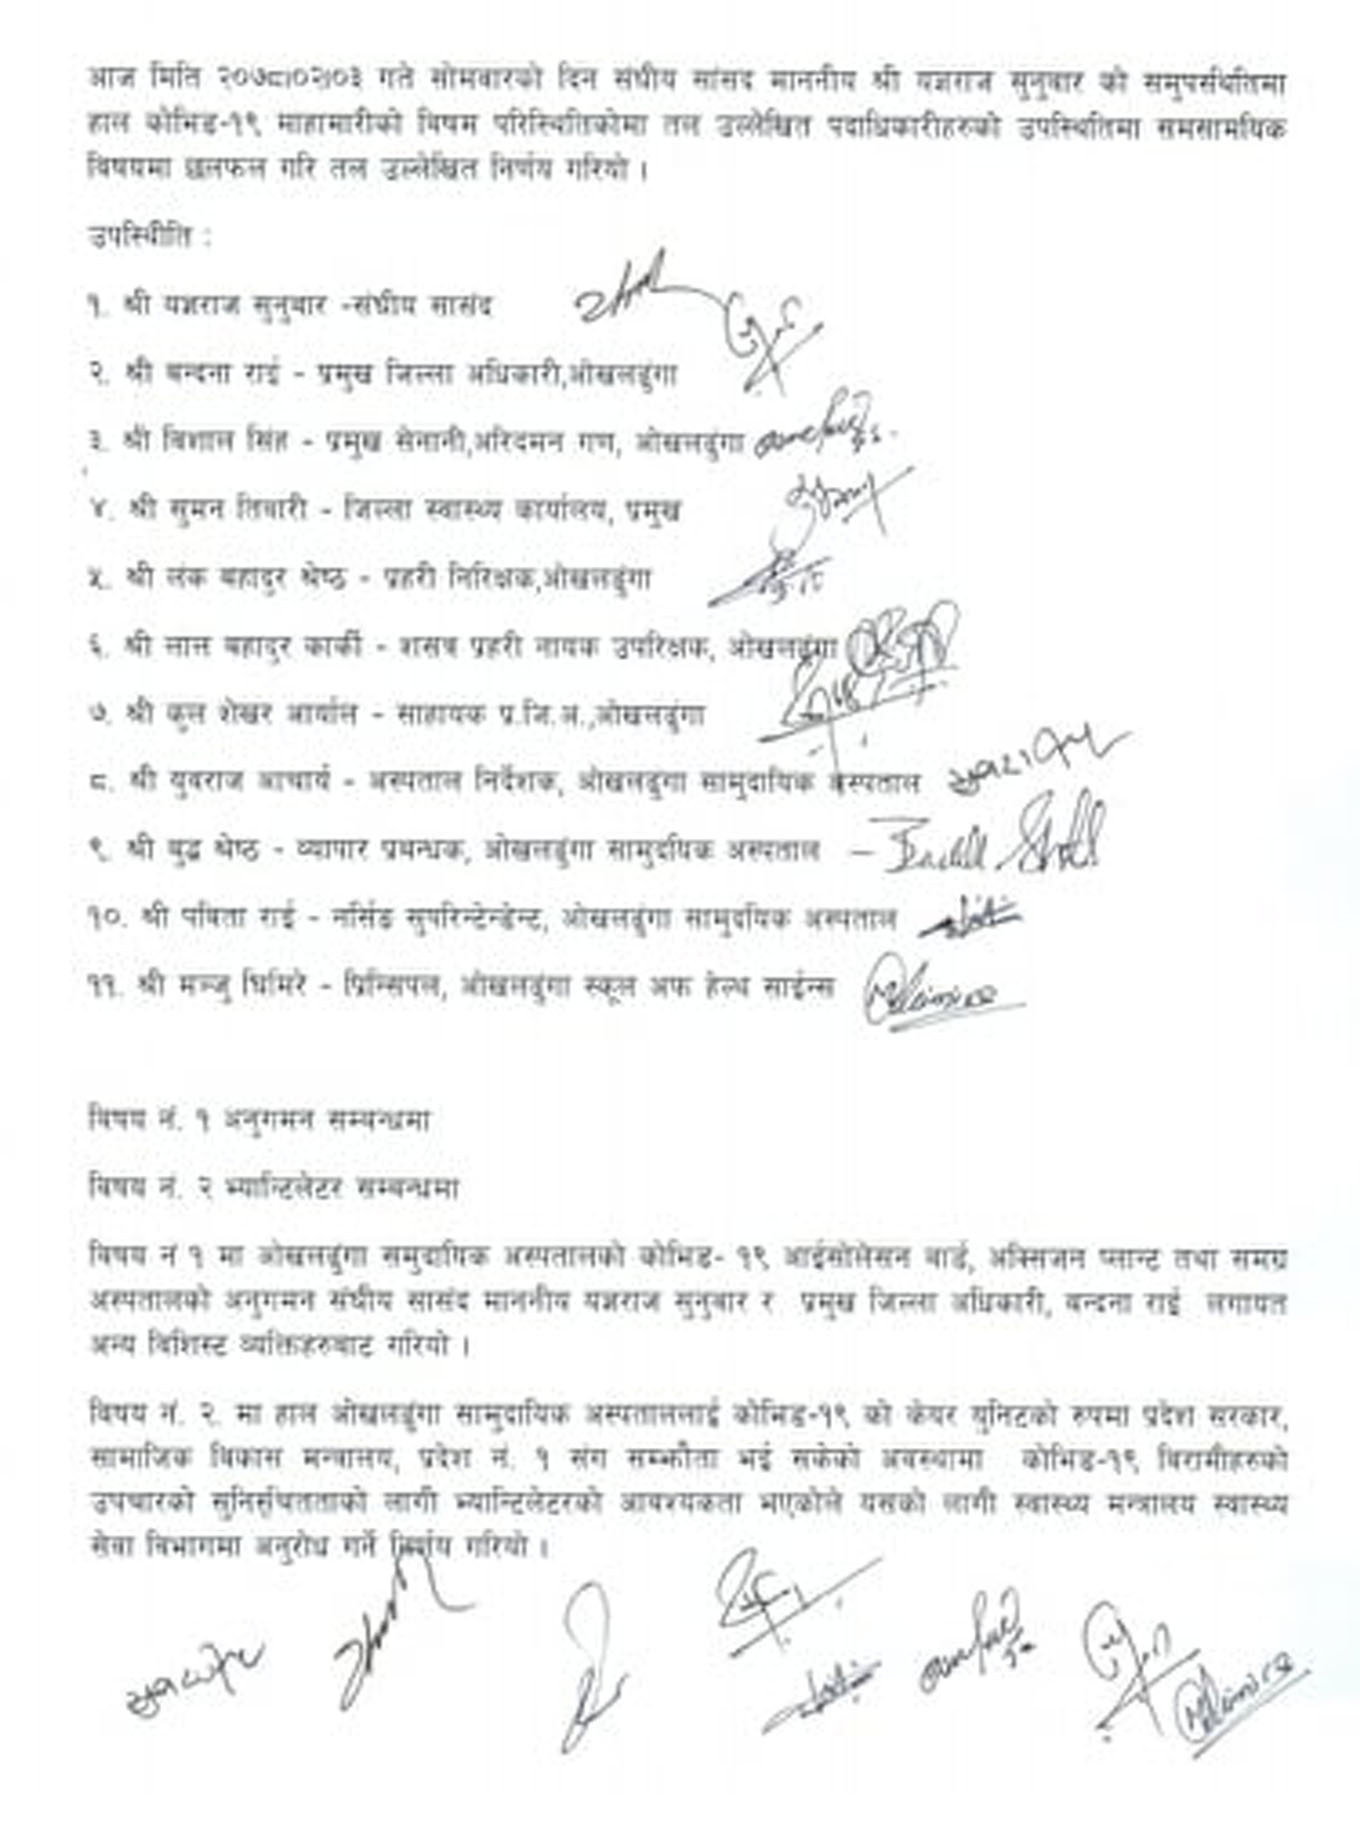 आज मिति २०७८।०२।०३ गते सोमवारको दिन संघीय सांसद माननीय श्री यज्ञराज सुनुवार को समुपस्थितिमा
हाल कोभिड-१९ माहामारीको विषम परिस्थितिकोमा तल उल्लेखित पदाधिकारीहरुको उपस्थितिमा समसामयिक
विषयमा छलफल गरि तल उल्लेखित निर्णय गरियो ।
उपस्थिीति :
१. श्री यज्ञराज सुनुवार -संघीय सासंद
२. श्री बन्दना राई - प्रमुख जिल्ला अधिकारी,ओखलढुंगा
३. श्री विशाल सिंह - प्रमुख सेनानी,अरिदमन गण, ओखलढुंगा
४. श्री सुमन तिवारी - जिल्ला स्वास्थ्य कार्यालय, प्रमुख
५. श्री लंक बहादुर श्रेष्ठ - प्रहरी निरिक्षक,ओखलढुंगा
६. श्री लाल बहादुर कार्की - शसस्त्र प्रहरी नायक उपरिक्षक, ओखलढुंगा
७. श्री कुल शेखर अार्याल - साहायक प्र.जि.अ.,ओखलढुंगा
८. श्री युवराज आचार्य - अस्पताल निर्देशक, ओखलढुंगा सामुदायिक अस्पताल
९. श्री बुद्ध श्रेष्ठ - व्यापार प्रबन्धक, ओखलढुंगा सामुदयिक अस्पताल
१०. श्री पबिता राई - नर्सिङ सुपरिन्टेन्डेन्ट, ओखलढुंगा सामुदयिक अस्पताल
११. श्री मञ्जु घिमिरे - प्रिन्सिपल, ओखलढुंगा स्कूल अफ हेल्थ साईन्स
विषय नं. १ अनुगमन सम्बन्धमा
विषय नं. २ भ्यान्टिलेटर सम्बन्धमा
विषय नं १ मा ओखलढुंगा समुदायिक अस्पतालको कोभिड- १९ आईसोलेसन वार्ड, अक्सिजन प्लान्ट तथा समग्र
अस्पतालको अनुगमन संघीय सासंद माननीय यज्ञराज सुनुवार र प्रमुख जिल्ला अधिकारी, बन्दना राई लगायत
अन्य विशिस्ट व्यक्तिहरुबाट गरियो ।
विषय नं. २. मा हाल ओखलढुंगा सामुदायिक अस्पताललाई कोभिड-१९ को केयर युनिटको रुपमा प्रदेश सरकार,
सामाजिक विकास मन्त्रालय, प्रदेश नं. १ संग सम्झौता भई सकेको अवस्थामा कोभिड-१९ विरामीहरुको
उपचारको सुनिर्सचितताको लागी भ्यान्टिलेटरको आवश्यकता भएकोले यसको लागी स्वास्थ्य मन्त्रालय स्वास्थ्य
सेवा विभागमा अनुरोध गर्ने निर्णय गरियो ।